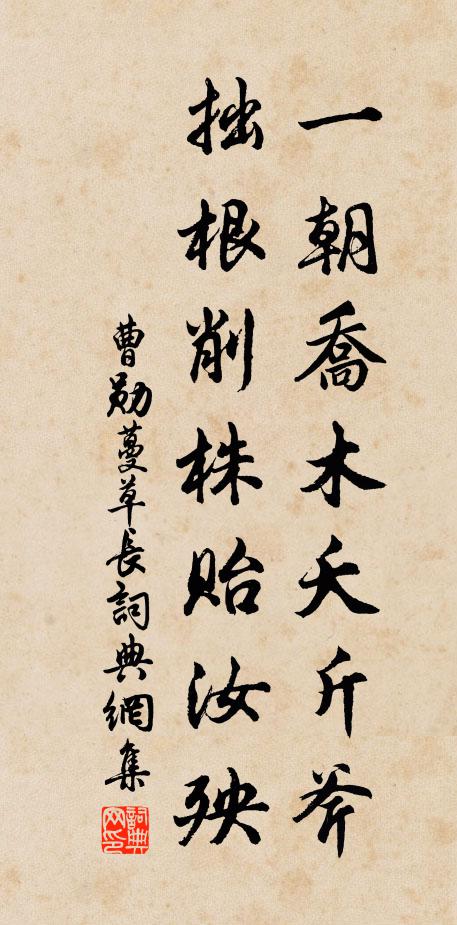 一朝喬木夭斤斧
拙根削株貽汝殃
曹勛蔓草長詞典網集
詞典网印